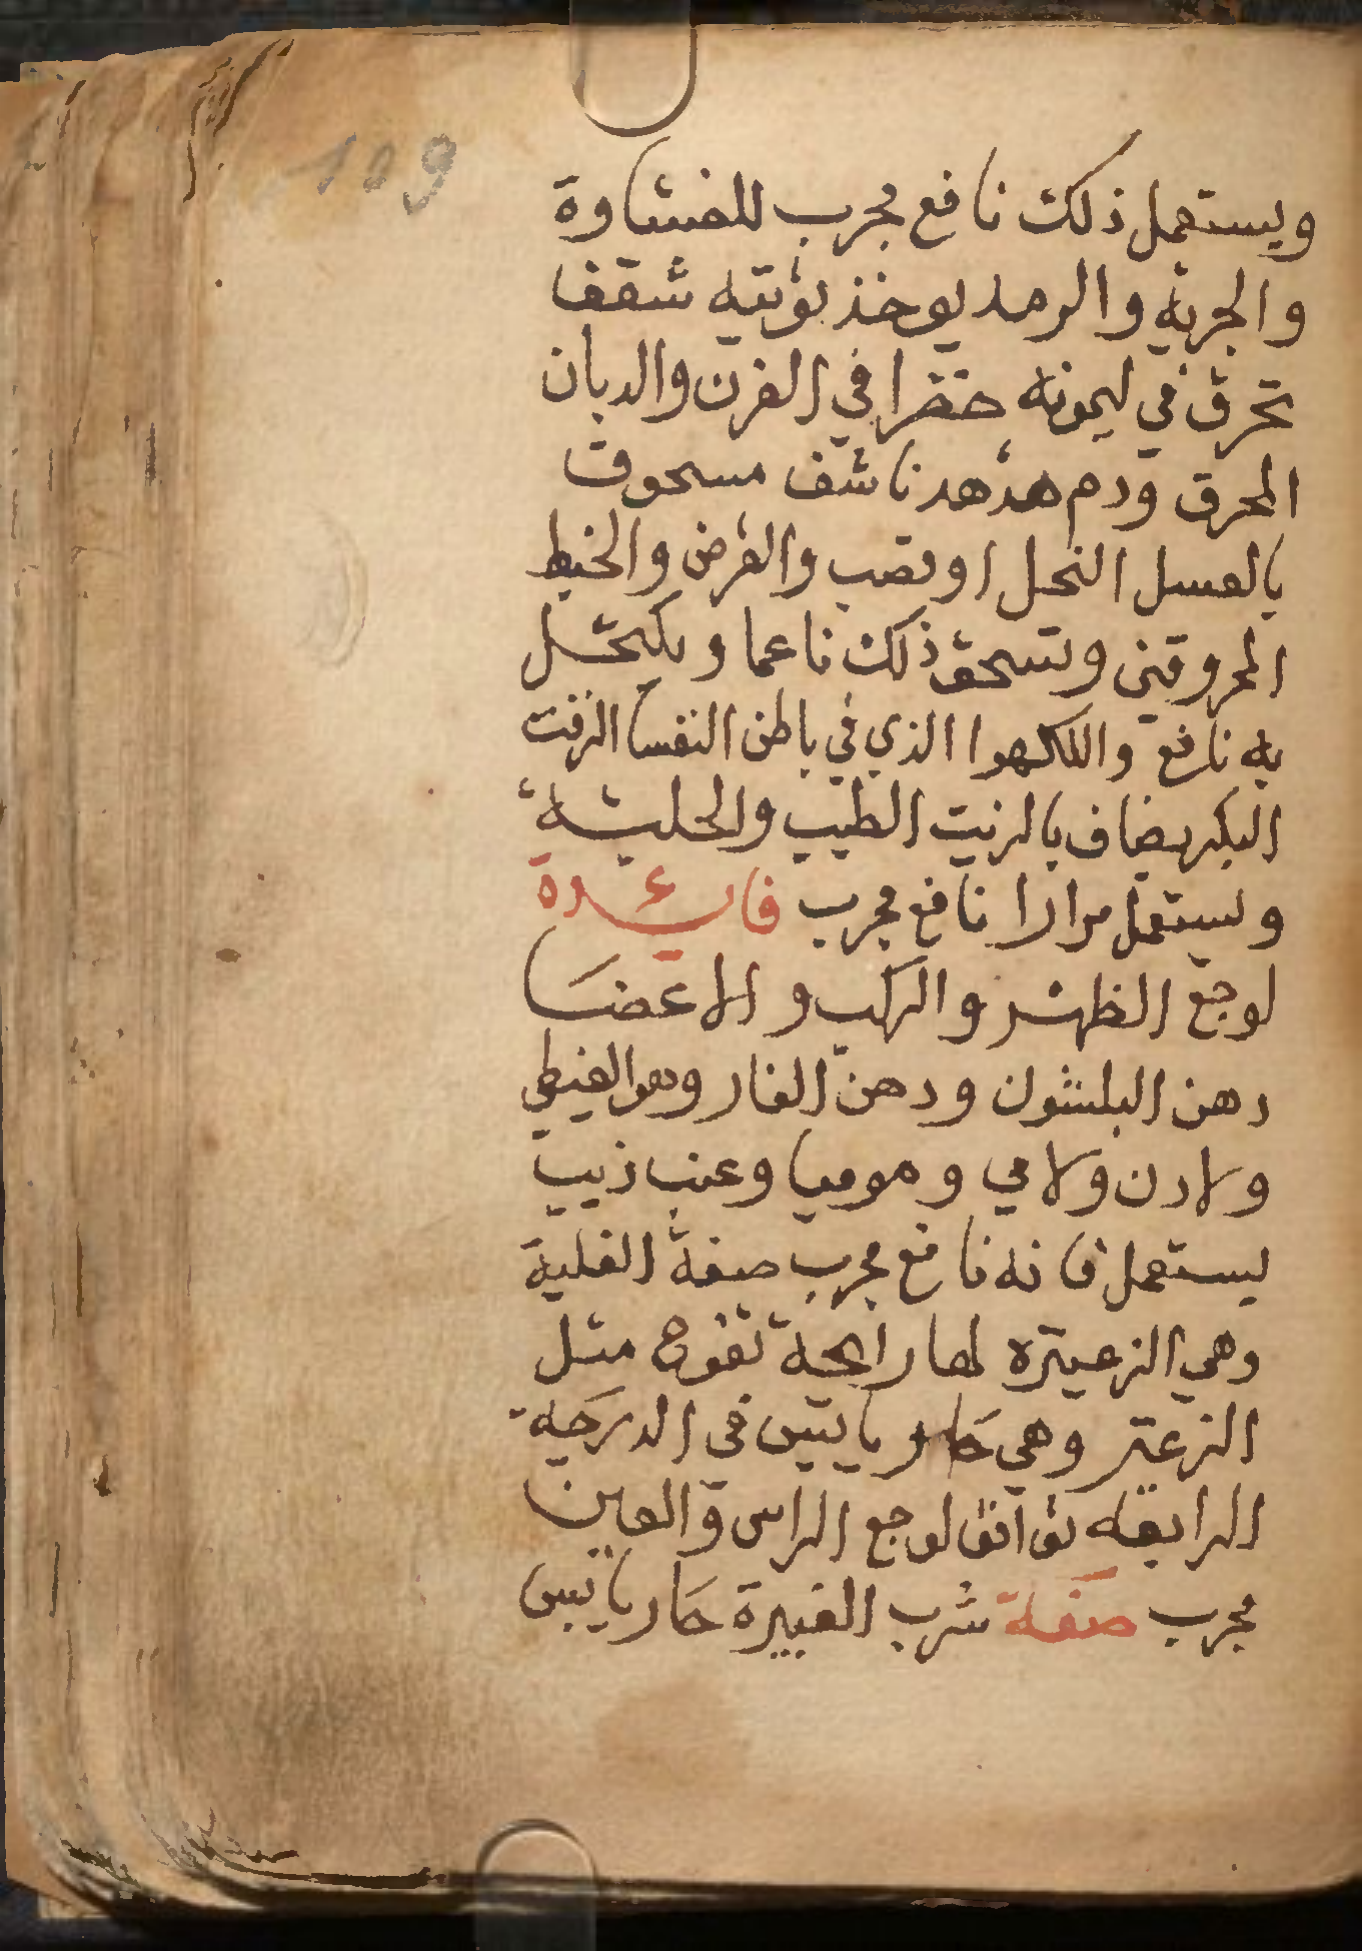 109
ويستعمل ذلك نافع مجرب للغشاوة
والجربه والرمد يوخذ توتيه شقفا
تحرق في ليمونه خضرا في الفرن والدبان
المحرق ودم هدهد ناشف مسحوق
بالعسل النحل او قصب والقرض والخيط
المحروقين وتسحق ذلك ناعما ويكتحل
به نافع والذي في باطن النفسا الزفت
البكر يضاف بالزيت الطيب والحلبه
ويستعمل مرارا نافع مجرب فايدة
لوجع الظهر والركب والاعضا
دهن البلشون ودهن الغار وهو الغيطي
ولادن ولامي وموميا وعنب زبيب
يستعمل فانه نافع مجرب صفة الغلية
وهي الزعيتره لها رايحة تفوح مثل
الزعتر وهي حار يابس في الدرجه
الرابعه توافق لوجع الراس والعين
مجرب صفة شرب الغبيرة حار يابس